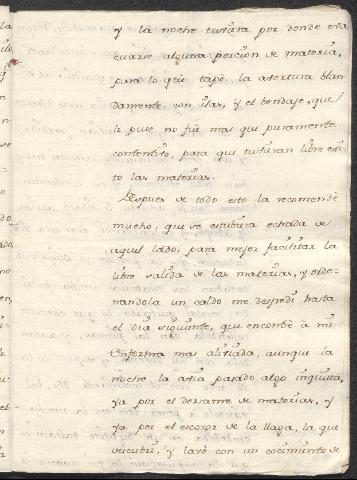 y la noche tubiera por donde eva
cuarse alguna porcion de materia,
para lo qe. tapè la avertura blan
damente con ilas, y el bendaje, que
le puse no fue mas que puramente
contentibo, para que tubieran libre exi
to las materias.
Despues de todo esto la recomendè
mucho, que se estubiera echada de
aquel lado, para mejor facilitar la
libre salida de las materias, y orde-
nandola un caldo me despedi hasta
el dia siguiente, que encontrè à mi
Enferma mas aliviada, aunque la
noche la avia pasado algo inquieta,
ya por el derrame de materias, y
ya por el escozor de la llaga, la que
descubri, y lavè con un cocimiento de